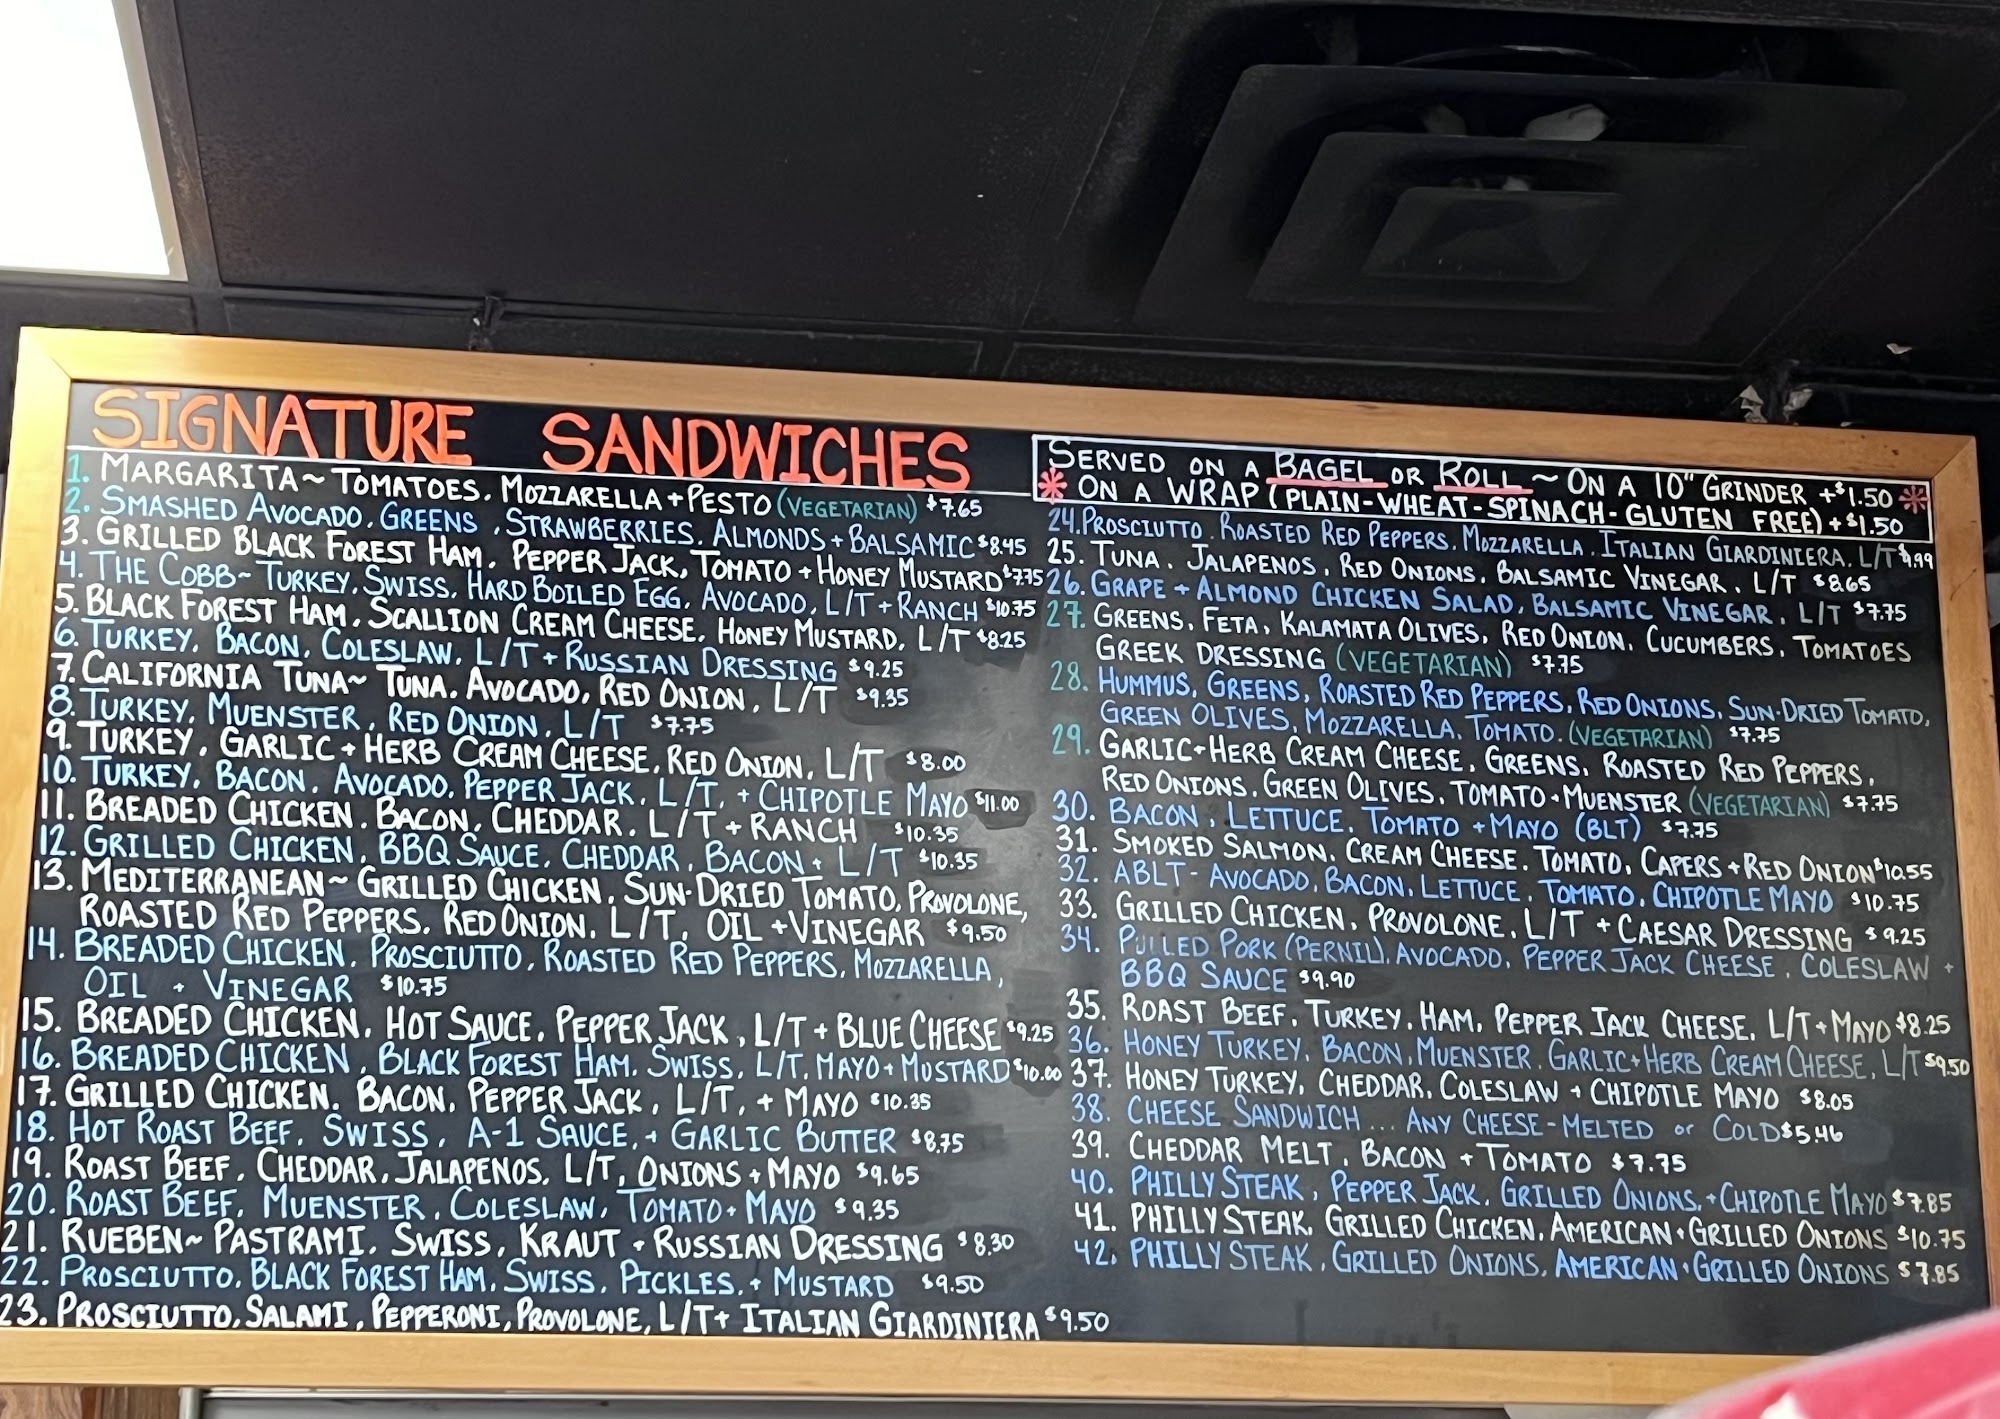 SIGNATURE SANDWICHES
1. MARGARITA~ TOMATOES, MOZZARELLA + PESTO (VEGETARIAN) $7.65
2. SMASHED AVOCADO, GREENS, STRAWBERRIES, ALMONDS + BALSAMIC $8.45
3. GRILLED BLACK FOREST HAM, PEPPER JACK, TOMATO + HONEY MUSTARD $7.75
4. THE COBB~ TURKEY, SWISS, HARD BOILED EGG, AVOCADO, L/T + RANCH $10.75
5. BLACK FOREST HAM, SCALLION CREAM CHEESE, HONEY MUSTARD, L/T $8.25
6. TURKEY, BACON, COLESLAW, L/T + RUSSIAN DRESSING $9.25
7. CALIFORNIA TUNA~ TUNA, AVOCADO, RED ONION, L/T $9.35
8. TURKEY, MUENSTER, RED ONION, L/T $7.75
9. TURKEY, GARLIC + HERB CREAM CHEESE, RED ONION, L/T $8.00
10. TURKEY, BACON, AVOCADO, PEPPER JACK, L/T, + CHIPOTLE MAYO $11.00
11. BREADED CHICKEN, BACON, CHEDDAR, L/T + RANCH $10.35
12. GRILLED CHICKEN, BBQ SAUCE, CHEDDAR, BACON + L/T $10.35
13. MEDITERRANEAN~ GRILLED CHICKEN, SUN-DRIED TOMATO, PROVOLONE,
ROASTED RED PEPPERS, RED ONION, L/T, OIL + VINEGAR $9.50
14. BREADED CHICKEN, PROSCIUTTO, ROASTED RED PEPPERS, MOZZARELLA,
OIL + VINEGAR $10.75
15. BREADED CHICKEN, HOT SAUCE, PEPPER JACK, L/T + BLUE CHEESE $9.25
16. BREADED CHICKEN, BLACK FOREST HAM, SWISS, L/T, MAYO + MUSTARD $10.00
17. GRILLED CHICKEN, BACON, PEPPER JACK, L/T, + MAYO $10.35
18. HOT ROAST BEEF, SWISS, A-1 SAUCE, + GARLIC BUTTER $8.75
19. ROAST BEEF, CHEDDAR, JALAPENOS, L/T, ONIONS + MAYO $9.65
20. ROAST BEEF, MUENSTER, COLESLAW, TOMATO + MAYO $9.35
21. RUEBEN~ PASTRAMI, SWISS, KRAUT + RUSSIAN DRESSING $8.30
22. PROSCIUTTO, BLACK FOREST HAM, SWISS, PICKLES, + MUSTARD $9.50
23. PROSCIUTTO, SALAMI, PEPPERONI, PROVOLONE, L/T + ITALIAN GIARDINIERA $9.50
SERVED ON A BAGEL OR ROLL ~ ON A 10" GRINDER +$1.50
ON A WRAP (PLAIN-WHEAT-SPINACH-GLUTEN FREE) +$1.50
24. PROSCIUTTO, ROASTED RED PEPPERS, MOZZARELLA, ITALIAN GIARDINIERA, L/T $9.99
25. TUNA, JALAPENOS, RED ONIONS, BALSAMIC VINEGAR, L/T $8.65
26. GRAPE + ALMOND CHICKEN SALAD, BALSAMIC VINEGAR, L/T $7.75
27. GREENS, FETA, KALAMATA OLIVES, RED ONION, CUCUMBERS, TOMATOES
GREEK DRESSING (VEGETARIAN) $7.75
28. HUMMUS, GREENS, ROASTED RED PEPPERS, RED ONIONS, SUN-DRIED TOMATO,
GREEN OLIVES, MOZZARELLA, TOMATO. (VEGETARIAN) $7.75
29. GARLIC+HERB CREAM CHEESE, GREENS, ROASTED RED PEPPERS,
RED ONIONS, GREEN OLIVES, TOMATO + MUENSTER (VEGETARIAN) $7.75
30. BACON, LETTUCE, TOMATO + MAYO (BLT) $7.75
31. SMOKED SALMON, CREAM CHEESE, TOMATO, CAPERS + RED ONION $10.55
32. ABLT - AVOCADO, BACON, LETTUCE, TOMATO, CHIPOTLE MAYO $10.75
33. GRILLED CHICKEN, PROVOLONE, L/T + CAESAR DRESSING $9.25
34. PULLED PORK (PERNIL), AVOCADO, PEPPER JACK CHEESE, COLESLAW +
BBQ SAUCE $9.90
35. ROAST BEEF, TURKEY, HAM, PEPPER JACK CHEESE, L/T + MAYO $8.25
36. HONEY TURKEY, BACON, MUENSTER, GARLIC+HERB CREAM CHEESE, L/T $9.50
37. HONEY TURKEY, CHEDDAR, COLESLAW + CHIPOTLE MAYO $8.05
38. CHEESE SANDWICH... ANY CHEESE - MELTED or COLD $5.46
39. CHEDDAR MELT, BACON + TOMATO $7.75
40. PHILLY STEAK, PEPPER JACK, GRILLED ONIONS, + CHIPOTLE MAYO $7.85
41. PHILLY STEAK, GRILLED CHICKEN, AMERICAN + GRILLED ONIONS $10.75
42. PHILLY STEAK, GRILLED ONIONS, AMERICAN + GRILLED ONIONS $7.85